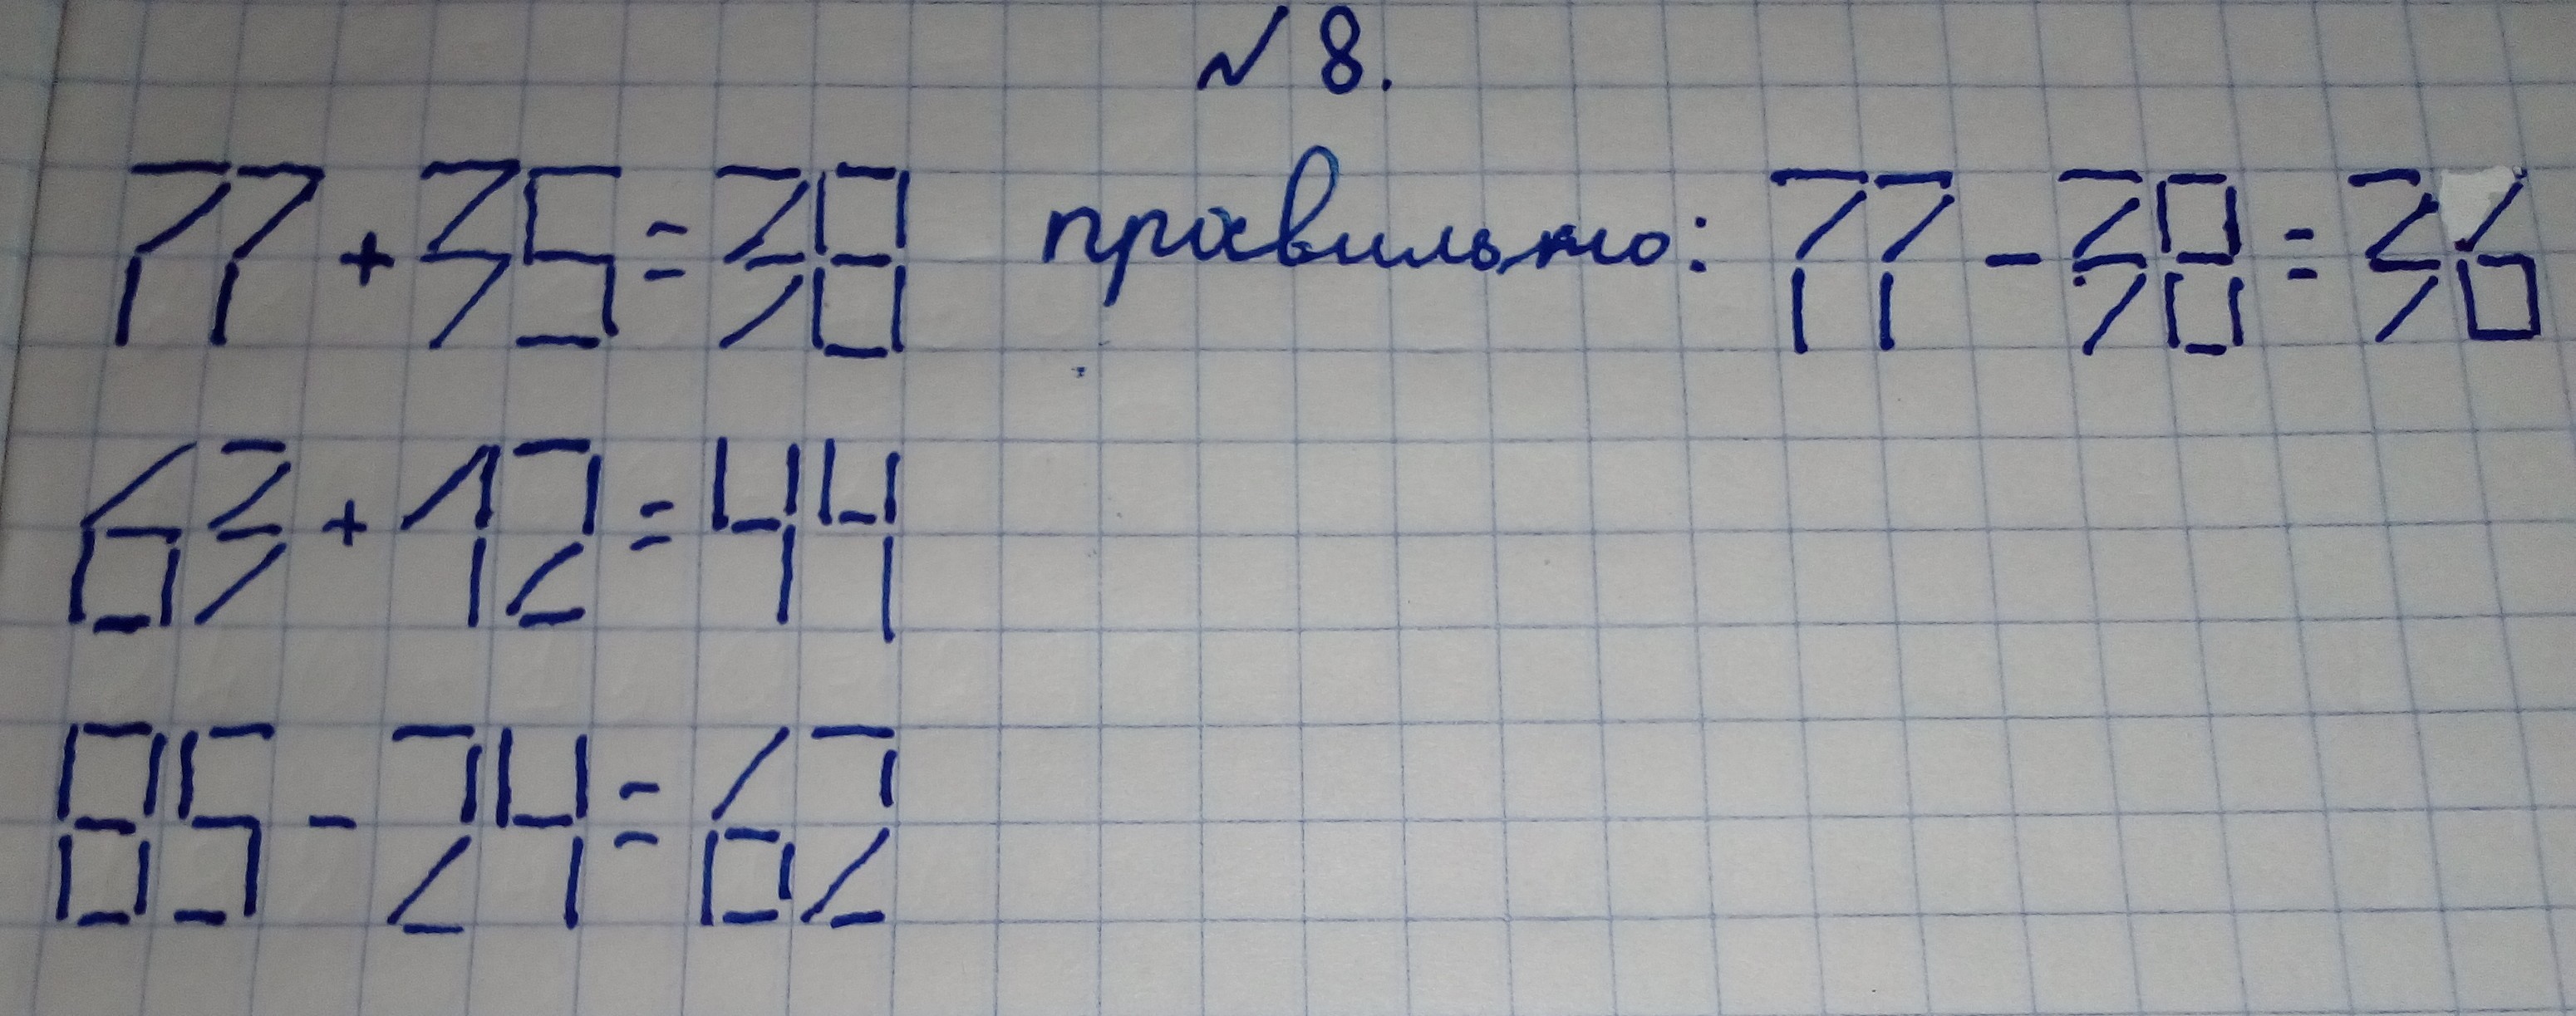 № 8.
77 + 35 = 38 правильно: 77 - 38 = 36
63 + 12 = 44
85 - 24 = 62